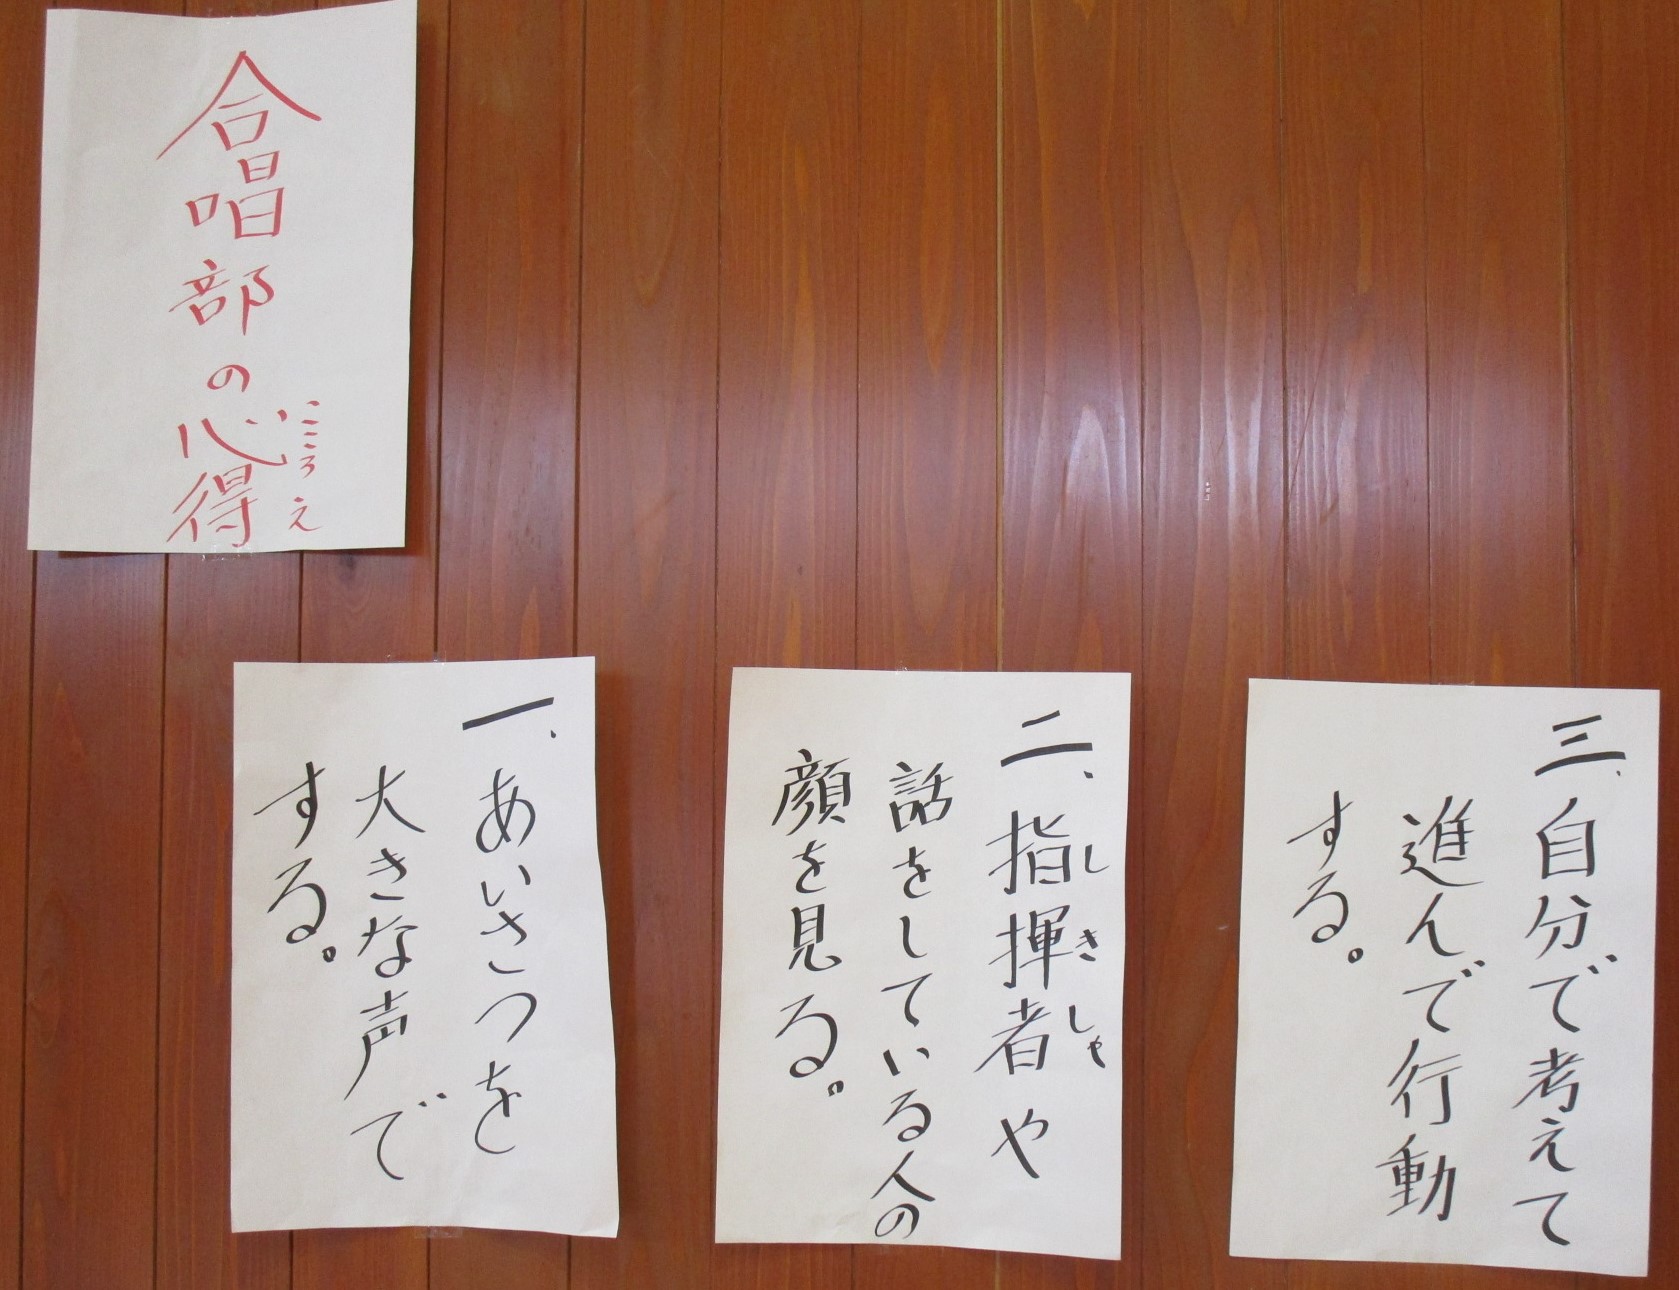 合唱部の心得
こころえ
一、あいさつを
大きな声で
する。
二、指揮者や
しきしゃ
話をしている人の
顔を見る。
三、自分で考えて
進んで行動
する。